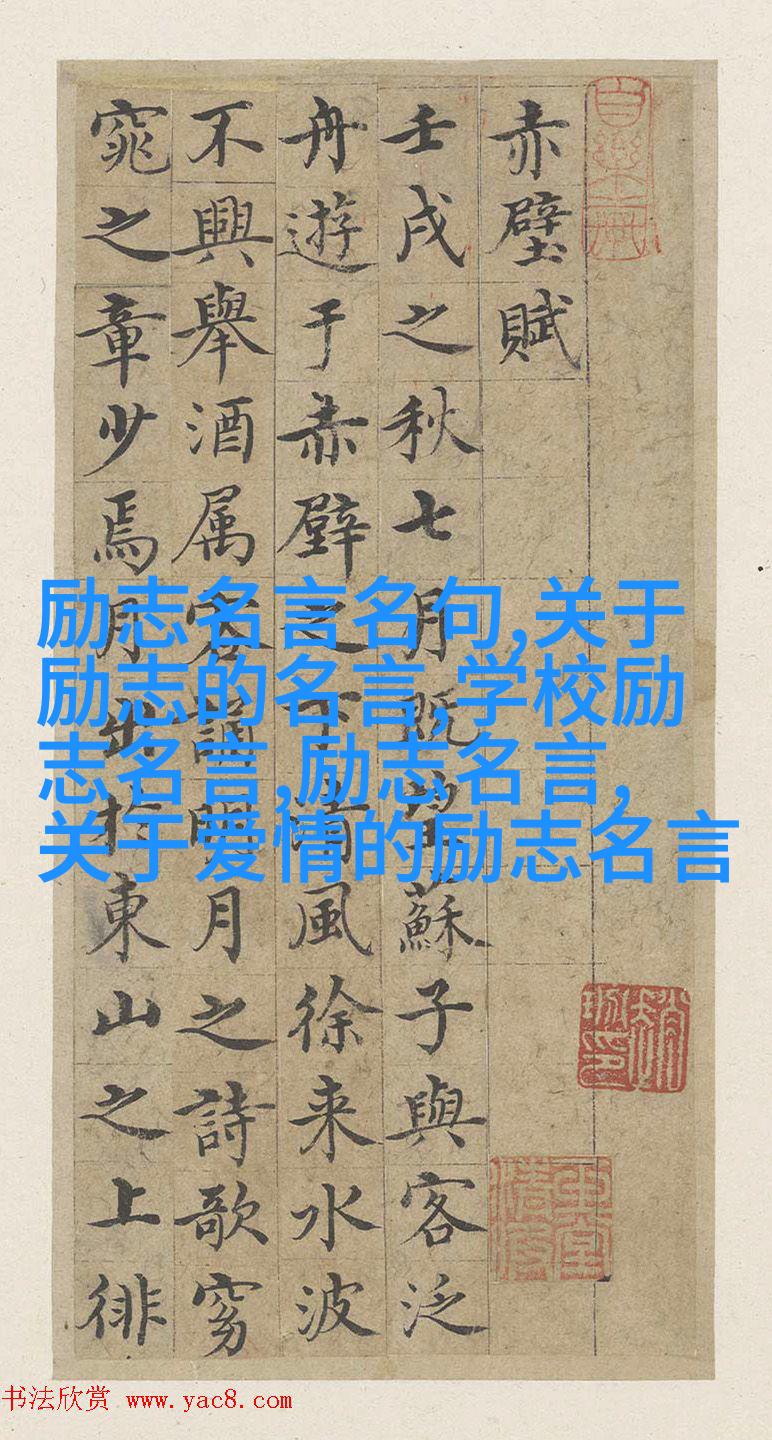 赤壁賦
壬戌之秋七月既望蘇子與客泛
舟遊于赤壁之下清風徐来水波
不興舉酒属客誦明月之詩歌窈
窕之章少焉月出於東山之上徘
励志名言名句,关于
励志的名言,学校励
志名言,励志名言,
关于爱情的励志名言
书法欣赏 www.yac8.com